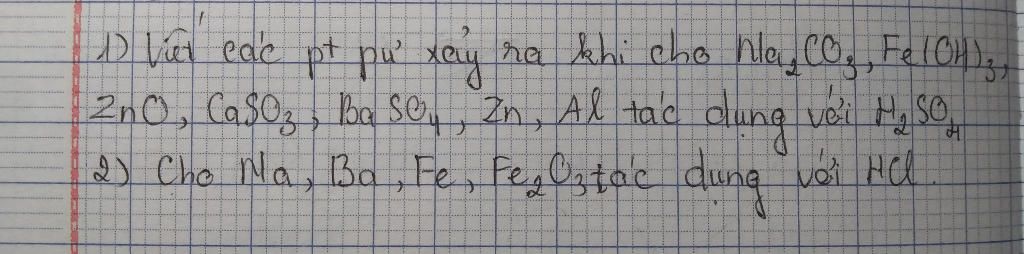 1) Viết các pt pư xảy ra khi cho Na₂CO₃, Fe(OH)₃,
ZnO, CaSO₃, BaSO₄, Zn, Al tác dụng với H₂SO₄
2) Cho Na, Ba, Fe, Fe₂O₃ tác dụng với HCl.